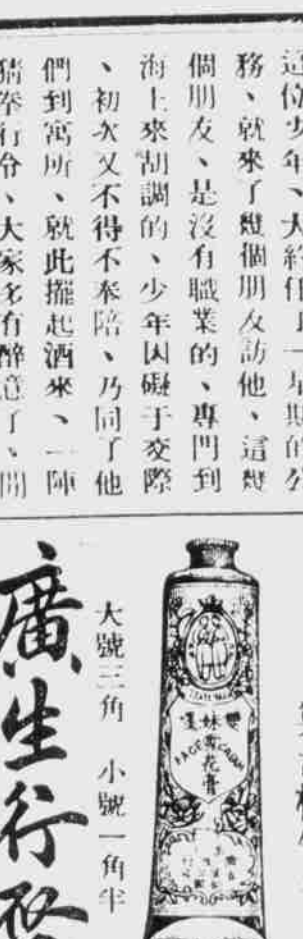 這位少年、大約住上一星期的公
務、就來了幾個朋友訪他、這幾
個朋友、是沒有職業的、專門到
海上來胡調的、少年因礙于交際
、初次又不得不奉陪、乃同了他
們到寓所、就此擺起酒來、一陣
猜拳行令、大家多有醉意了、開
雙妹嚜
FACE CREAM
雪花膏
大號三角 小號一角半
廣生行